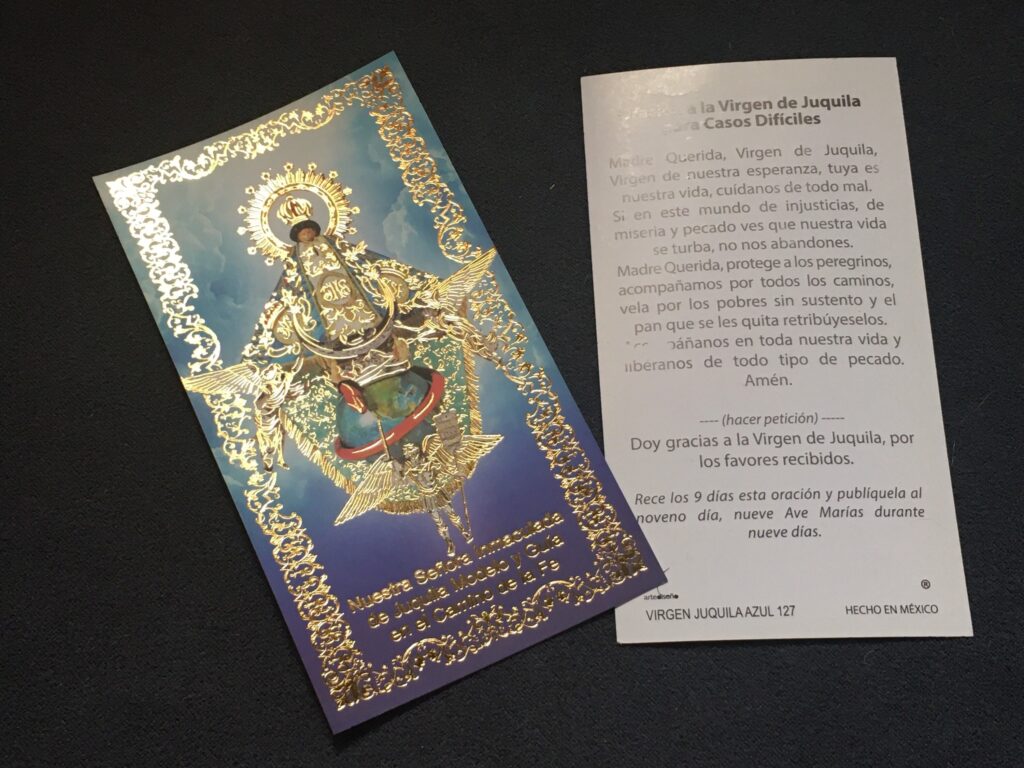 Nuestra Señora Inmaculada
de Juquila Modelo y Guía
en el Camino de la Fe
a la Virgen de Juquila
para Casos Difíciles
Madre Querida, Virgen de Juquila,
Virgen de nuestra esperanza, tuya es
nuestra vida, cuídanos de todo mal.
Si en este mundo de injusticias, de
miseria y pecado ves que nuestra vida
se turba, no nos abandones.
Madre Querida, protege a los peregrinos,
acompañamos por todos los caminos,
vela por los pobres sin sustento y el
pan que se les quita retribúyeselos.
en toda nuestra vida y
libéranos de todo tipo de pecado.
Amén.
---- (hacer petición) -----
Doy gracias a la Virgen de Juquila, por
los favores recibidos.
Rece los 9 días esta oración y publíquela al
noveno día, nueve Ave Marías durante
nueve días.
®
artediseño
VIRGEN JUQUILA AZUL 127 HECHO EN MÉXICO